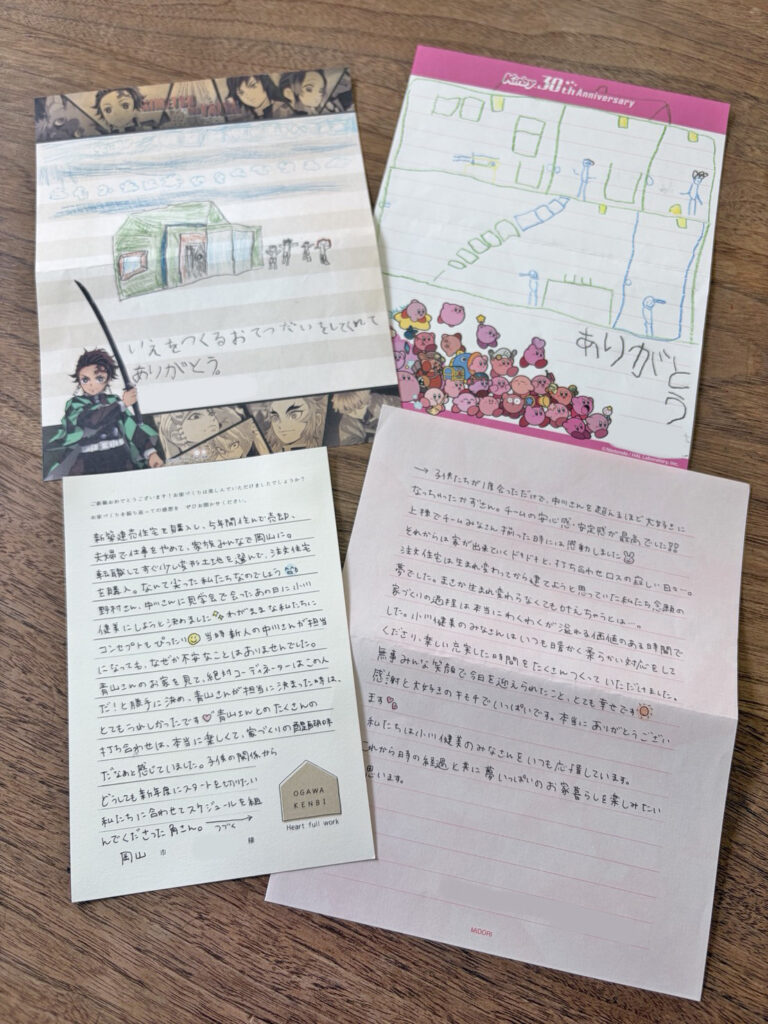 いえをつくるおてつだいをしてくれて
ありがとう。
Kirby 30th Anniversary
ありがとう
©Nintendo / HAL Laboratory, Inc.
ご新築おめでとうございます！お家づくりは楽しんでいただけましたでしょうか？
お家づくりを振り返っての感想を ぜひお聞かせください。
新築建売住宅を購入し、5年間住んで売却、
夫婦で仕事をやめて、家族みんなで岡山に。
転職してすぐ少し変形土地を選んで、注文住宅
を購入。なんて尖った私たちなのでしょう
野村さん、中川さんに見学会で会ったあの日に小川
健美にしようと決めました わがままな私たちに
コンセプトもぴったり 当時新人の中川さんが担当
になっても、なぜか不安なことはありませんでした。
青山さんのお家を見て、絶対コーディネーターはこの人
だ！と勝手に決め、青山さんが担当に決まった時は、
とてもうれしかったです♡青山さんとのたくさんの
打ち合わせは、本当に楽しくて、家づくりの醍醐味
だなぁと感じていました。子供の関係から
どうしても新年度にスタートを切りたい
私たちに合わせてスケジュールを組
んでくださった角さん。 つづく→
岡山 市 様
OGAWA
KENBI
Heart full work
→ 子供たちが1度会っただけで、中川さんを超えるほど大好きに
なっちゃったかずさん。チームの安心感・安定感が最高でした
上棟でチームみなさん揃った日には感動しました
それからは家が出来ていくドキドキと、打ち合わせロスの寂しい日々…。
注文住宅は生まれ変わってから建てようと思っていた私たち念願の
夢でした。まさか生まれ変わらなくても叶えちゃうとは…。
家づくりの過程は本当にわくわくが溢れる価値のある時間で
した。小川健美のみなさんはいつも暖かく柔らかい対応をして
くださり、楽しい充実した時間をたくさんつくっていただけました。
無事みんな笑顔で今日を迎えられたこと、とても幸せです
感謝と大好きのキモチでいっぱいです。本当にありがとうござい
ます
私たちは小川健美のみなさんをいつも応援しています。
これから日時の経過と共に夢いっぱいのお家暮らしを楽しみたい
思います。
MIDORI